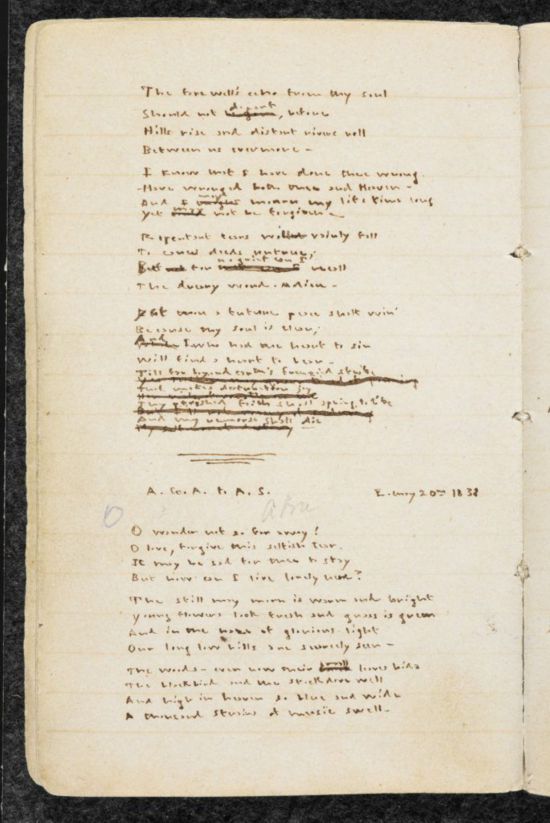 The farewell's echo from thy soul
Should not depart, before
Hills rise and distant rivers roll
Between us evermore -
I know that I have done thee wrong
Have wronged both thee and Heaven -
And I may mourn my life time long
Yet may not be forgiven -
Repentant tears will vainly fall
To cover deeds untrue;
But for no grief can I recall
The dreary word - Adieu -
Yet thou a future peace shalt win
Because thy soul is clear;
And I who had the heart to sin
Will find a heart to bear -
Till far beyond earth's frenzied strife
That makes destruction joy
Thy perished faith shall spring to life
And my remorse shall die
A. G. A. to A. S.
E. May 20th 1838
O wander not so far away!
O love, forgive this selfish tear.
It may be sad for thee to stay
But how can I live lonely here?
The still may morn is warm and bright
Young flowers look fresh and grass is green
And in the haze of glorious light
Our long low hills are scarcely seen -
The woods - even now their small leaves hide
The blackbird and the stockdove well
And high in heaven so blue and wide
A thousand strains of music swell -